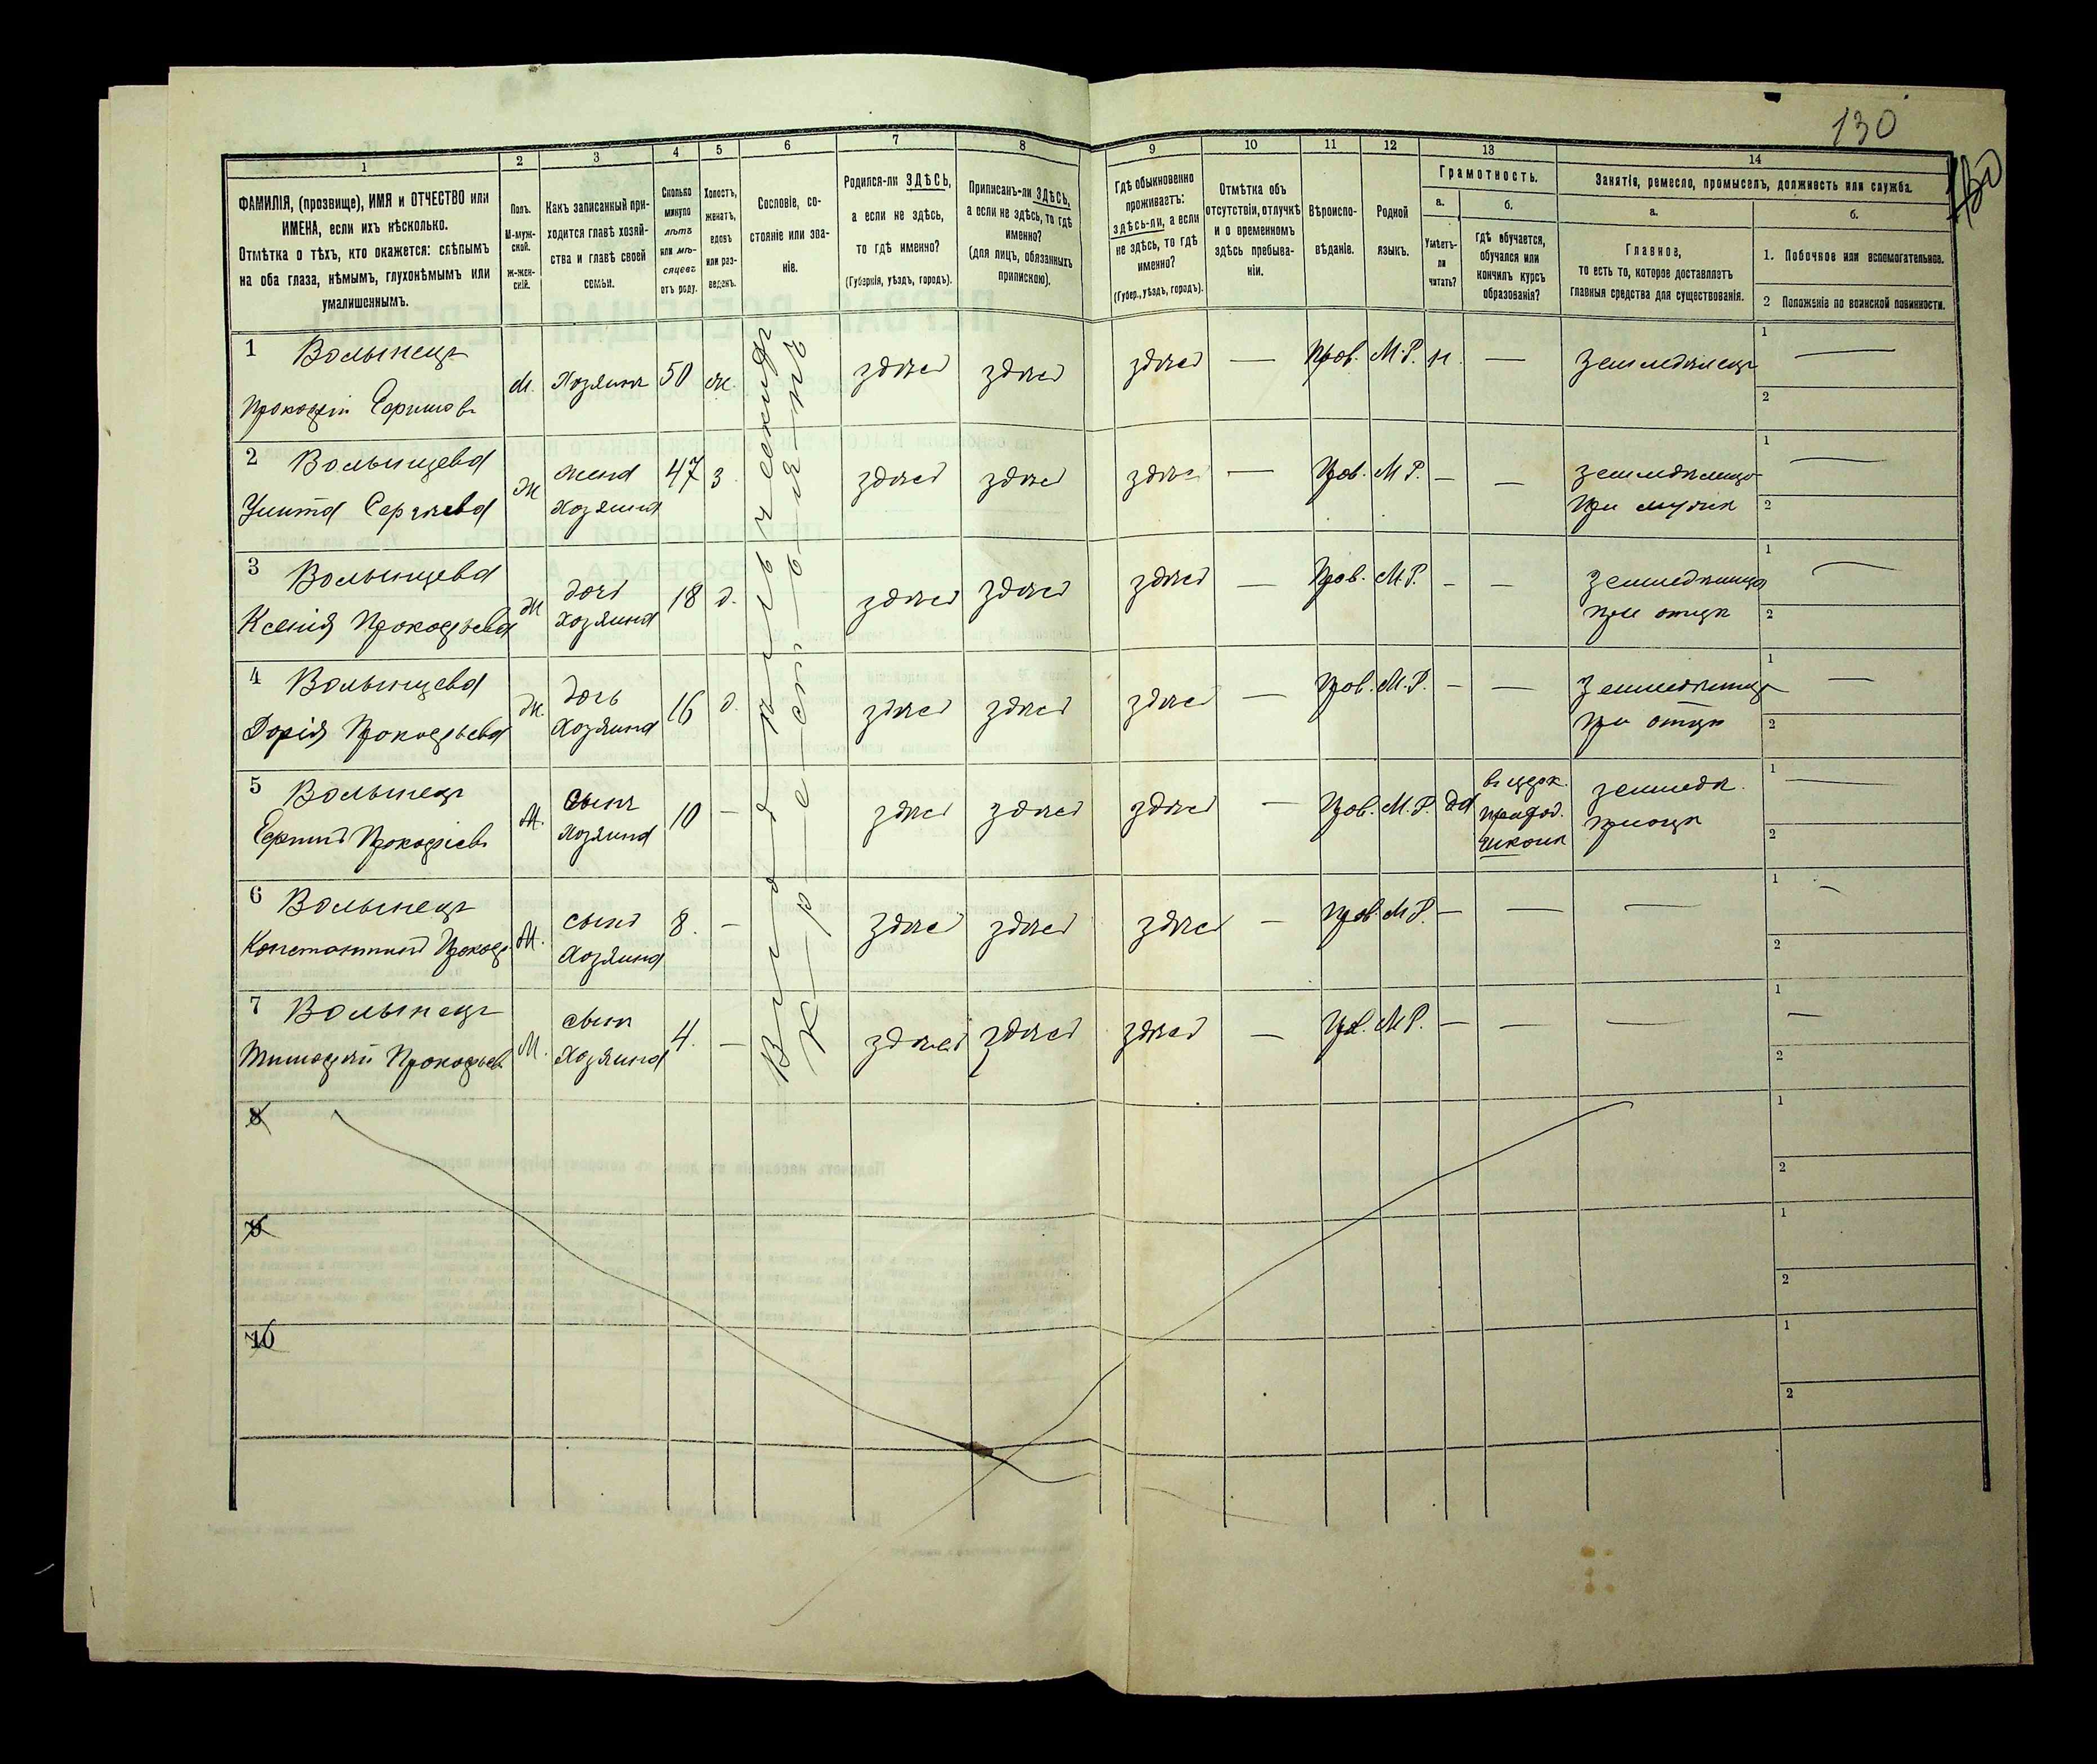 130
1 2 3 4 5 6 7 8 9 10 11 12 13 14
ФАМИЛІЯ, (прозвище), ИМЯ и ОТЧЕСТВО или
ИМЕНА, если ихъ нѣсколько.
Отмѣтка о тѣхъ, кто окажется: слѣпымъ
на оба глаза, нѣмымъ, глухонѣмымъ или
умалишеннымъ.
Полъ.
М-муж-
ской.
Ж-жен-
скій.
Какъ записанный при-
ходится главѣ хозяй-
ства и главѣ своей
семьи.
Сколько
минуло
лѣтъ
или мѣ-
сяцевъ
отъ роду.
Холостъ,
женатъ,
вдовъ
или раз-
веденъ.
Сословіе, со-
стояніе или зва-
ніе.
Родился-ли ЗДѢСЬ,
а если не здѣсь,
то гдѣ именно?
(Губернія, уѣздъ, городъ).
Приписанъ-ли ЗДѢСЬ,
а если не здѣсь, то гдѣ
именно?
(для лицъ, обязанныхъ
припискою).
Гдѣ обыкновенно
проживаетъ:
здѣсь-ли, а если
не здѣсь, то гдѣ
именно?
(Губер., уѣздъ, городъ).
Отмѣтка объ
отсутствіи, отлучкѣ
и о временномъ
здѣсь пребыва-
ніи.
Вѣроиспо-
вѣданіе.
Родной
языкъ.
Грамотность.
а.
Умѣетъ-
ли
читать?
б.
Гдѣ обучается,
обучался или
кончилъ курсъ
образованія?
Занятія, ремесло, промыселъ, должность или служба.
а.
Главное,
то есть то, которое доставляетъ
главныя средства для существованія.
б.
1. Побочное или вспомогательное.
2 Положеніе по воинской повинности.
1 Волынецъ
Прокофій
М. Хозяинъ 50 ж. здѣсь здѣсь здѣсь — Прав. М.Р. н. — земледѣлецъ
1 —
2
2 Волынцева
Улита Сергѣева
Ж жена
хозяина
47 з. здѣсь здѣсь здѣсь — Прав. М.Р. — —
при мужѣ
1 —
2
3 Волынцева
Ксенія Прокофьева
Ж дочь
хозяина
18 д. здѣсь здѣсь здѣсь — Прав. М.Р. — —
при отцѣ
1 —
2
4 Волынцева
Дарія Прокофьева
Ж. дочь
хозяина
16 д. здѣсь здѣсь здѣсь — Прав. М.Р. — —
при отцѣ
1 —
2
5 Волынецъ
Прокофіевъ
М. сынъ
хозяина
10 — здѣсь здѣсь здѣсь — Прав. М.Р. да
въ церк.
приход.
школѣ
земледѣл.
1 —
2
6 Волынецъ
Константинъ Прокоф
М. сынъ
хозяина
8. — здѣсь здѣсь здѣсь — Прав. М.Р. — — —
1 —
2
7 Волынецъ
Тимофѣй Прокофьев.
М. сынъ
хозяина
4. — здѣсь здѣсь здѣсь — Прав. М.Р. — — —
1 —
2
Крестьянинъ
8
1
2
9
1
2
10
1
2